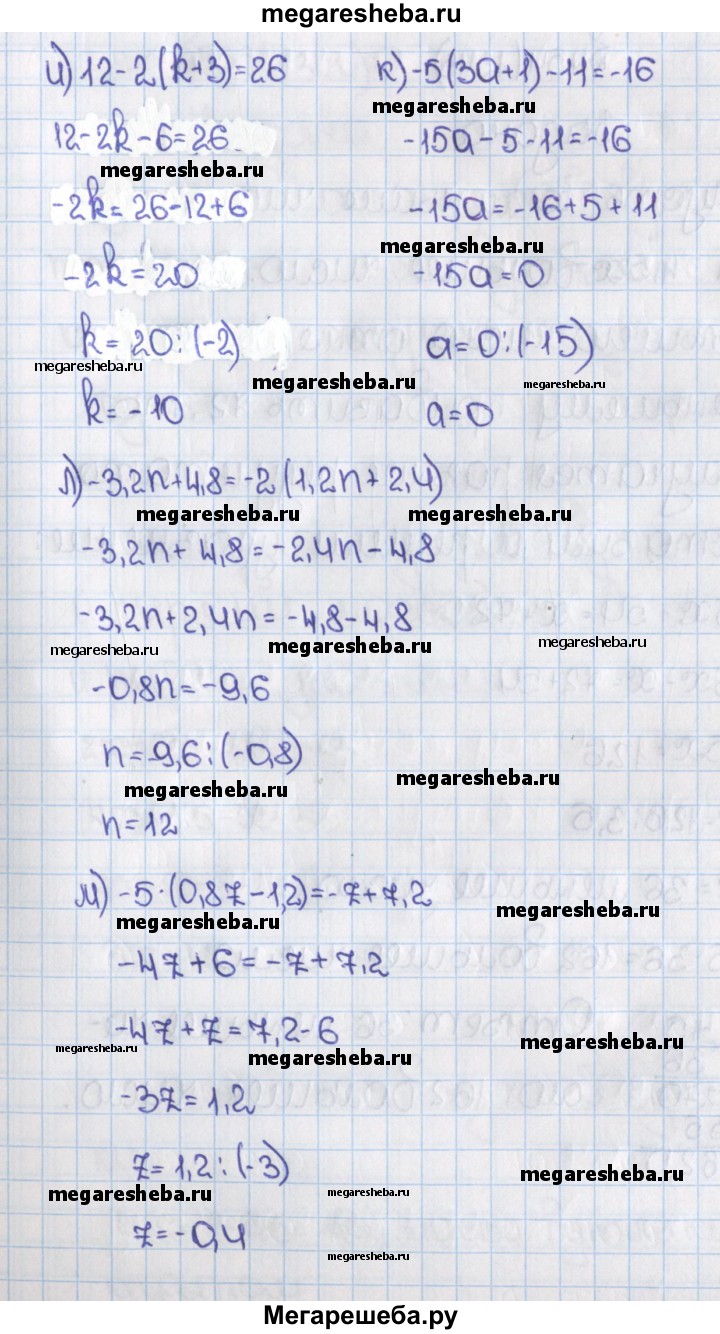 megaresheba.ru
и) 12-2(k+3)=26
к) -5(3a+1)-11=-16
megaresheba.ru
12-2k-6=26
-15a-5-11=-16
megaresheba.ru
-2k=26-12+6
-15a=-16+5+11
megaresheba.ru
-2k=20
-15a=0
k=20:(-2)
a=0:(-15)
megaresheba.ru
megaresheba.ru
megaresheba.ru
k=-10
a=0
л) -3,2n+4,8=-2(1,2n+2,4)
megaresheba.ru
megaresheba.ru
-3,2n+4,8=-2,4n-4,8
-3,2n+2,4n=-4,8-4,8
megaresheba.ru
megaresheba.ru
megaresheba.ru
-0,8n=-9,6
n=-9,6:(-0,8)
megaresheba.ru
megaresheba.ru
n=12
м) -5·(0,8z-1,2)=-z+7,2
megaresheba.ru
megaresheba.ru
-4z+6=-z+7,2
-4z+z=7,2-6
megaresheba.ru
megaresheba.ru
megaresheba.ru
-3z=1,2
z=1,2:(-3)
megaresheba.ru
megaresheba.ru
megaresheba.ru
z=-0,4
megaresheba.ru
Мегарешеба.ру